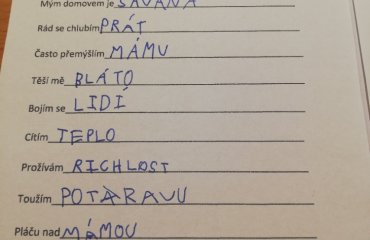 Mým domovem je SAVANA
Rád se chlubím PRÁT
Často přemýšlím MÁMU
Těší mě BLÁTO
Bojím se LIDÍ
Cítím TEPLO
Prožívám RICHLOST
Toužím POTARAVU
Pláču nad MÁMOU